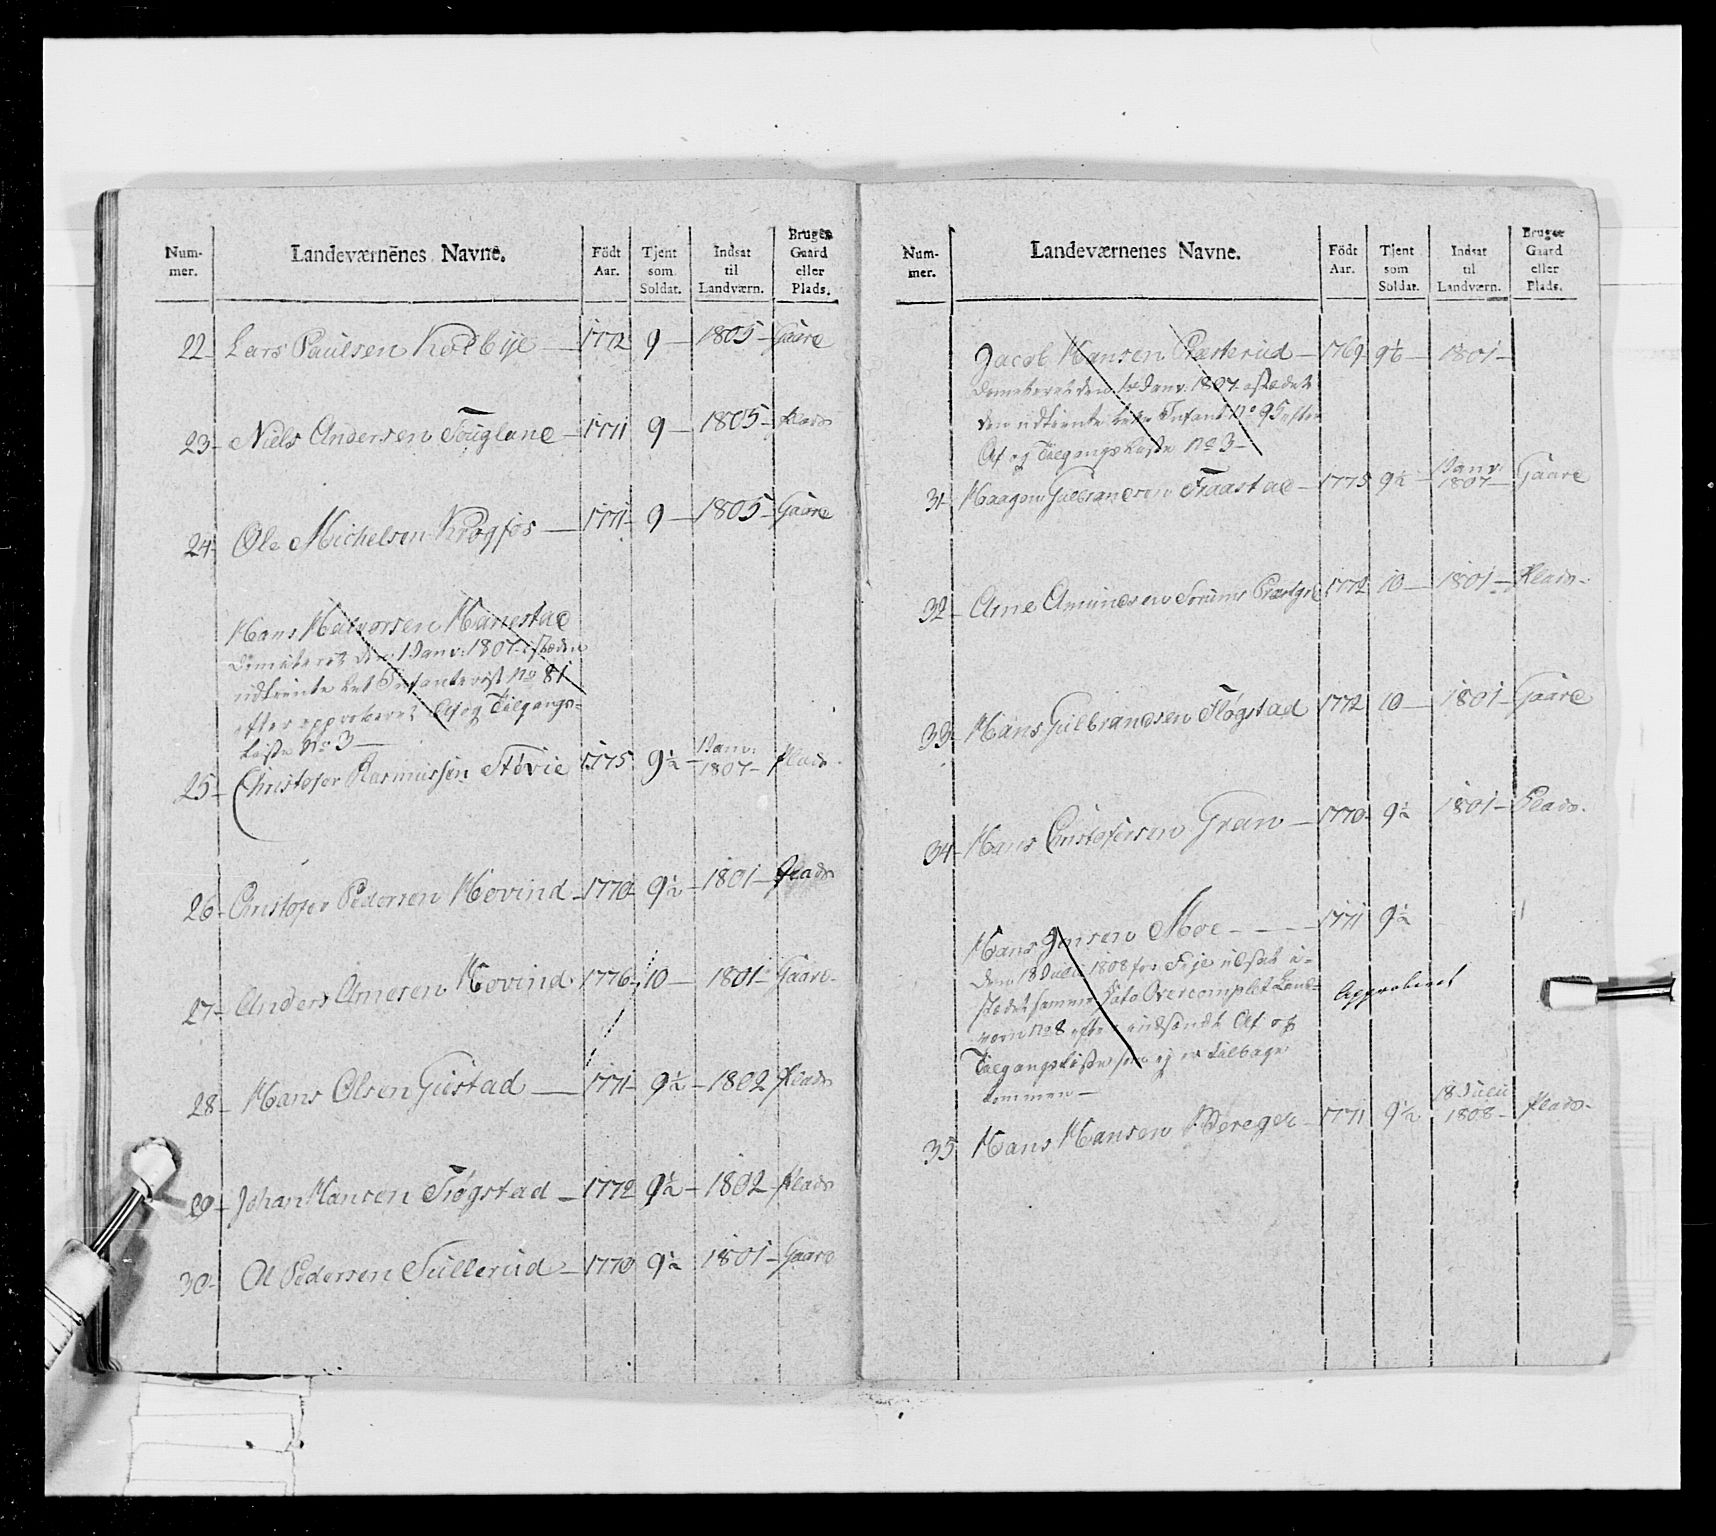 Num-
mer.
Landeværnenes Navne.
Födt
Aar.
Tjent
som
Soldat.
Indsat
til
Landværn.
Bruger
Gaard
eller
Plads.
22 Lars Paulsen Kolbye 1772 9 1805 Gaard
23 Niels Andersen Fougland 1771 9 1805 Plads
24 Ole Michelsen Krogfos 1771 9 1805 Gaard
Hans Halvorsen Hanestad
Dimiteret den 1 Janv: 1807 istæden
udtiente Let Infanterist No 81
efter approberet Af og Tilgangs-
Liste No 3
25 Christofer Rasmussen Støvie 1775 9½ 1 Janv: 1807 Plads
26 Christofer Pedersen Hovind 1770 9½ 1801 Plads
27 Anders Arnesen Hovind 1776 10 1801 Gaard
28 Hans Olsen Gustad 1771 9½ 1802 Plads
29 Johan Hansen Fløgstad 1772 9½ 1802 Plads
30 Ol Pedersen Sullerud 1770 9½ 1801 Gaard
Num-
mer.
Landeværnenes Navne.
Födt
Aar.
Tjent
som
Soldat.
Indsat
til
Landværn.
Bruger
Gaard
eller
Plads.
Jacob Hansen Præsterud 1769 9½ 1801
Dimiteret den 1te Janv: 1807 istædet
den udtiente Infant No 95 efter
Af og Tilgangs Liste No 3
31 Haagen Gulbrandsen Fraastad 1775 9½ 1 Janv: 1807 Gaard
32 Arne Amundsen Sørum 1772 10 1801 Plads
33 Hans Gulbrandsen Fløgstad 1772 10 1801 Gaard
34 Hans Christofersen Gran 1770 9½ 1801 Plads
Hans Jensen Moe 1771 9½
Den 18 Julii 1808 for udsat i-
stædet samme Dato Overcomplet Land-
værn No 8 efter indsendt Af og
Tilgangsliste som ej er tilbage
kommen
Approberet
35 Hans Hansen Berger 1771 9½ 18 Julii 1808 Plads